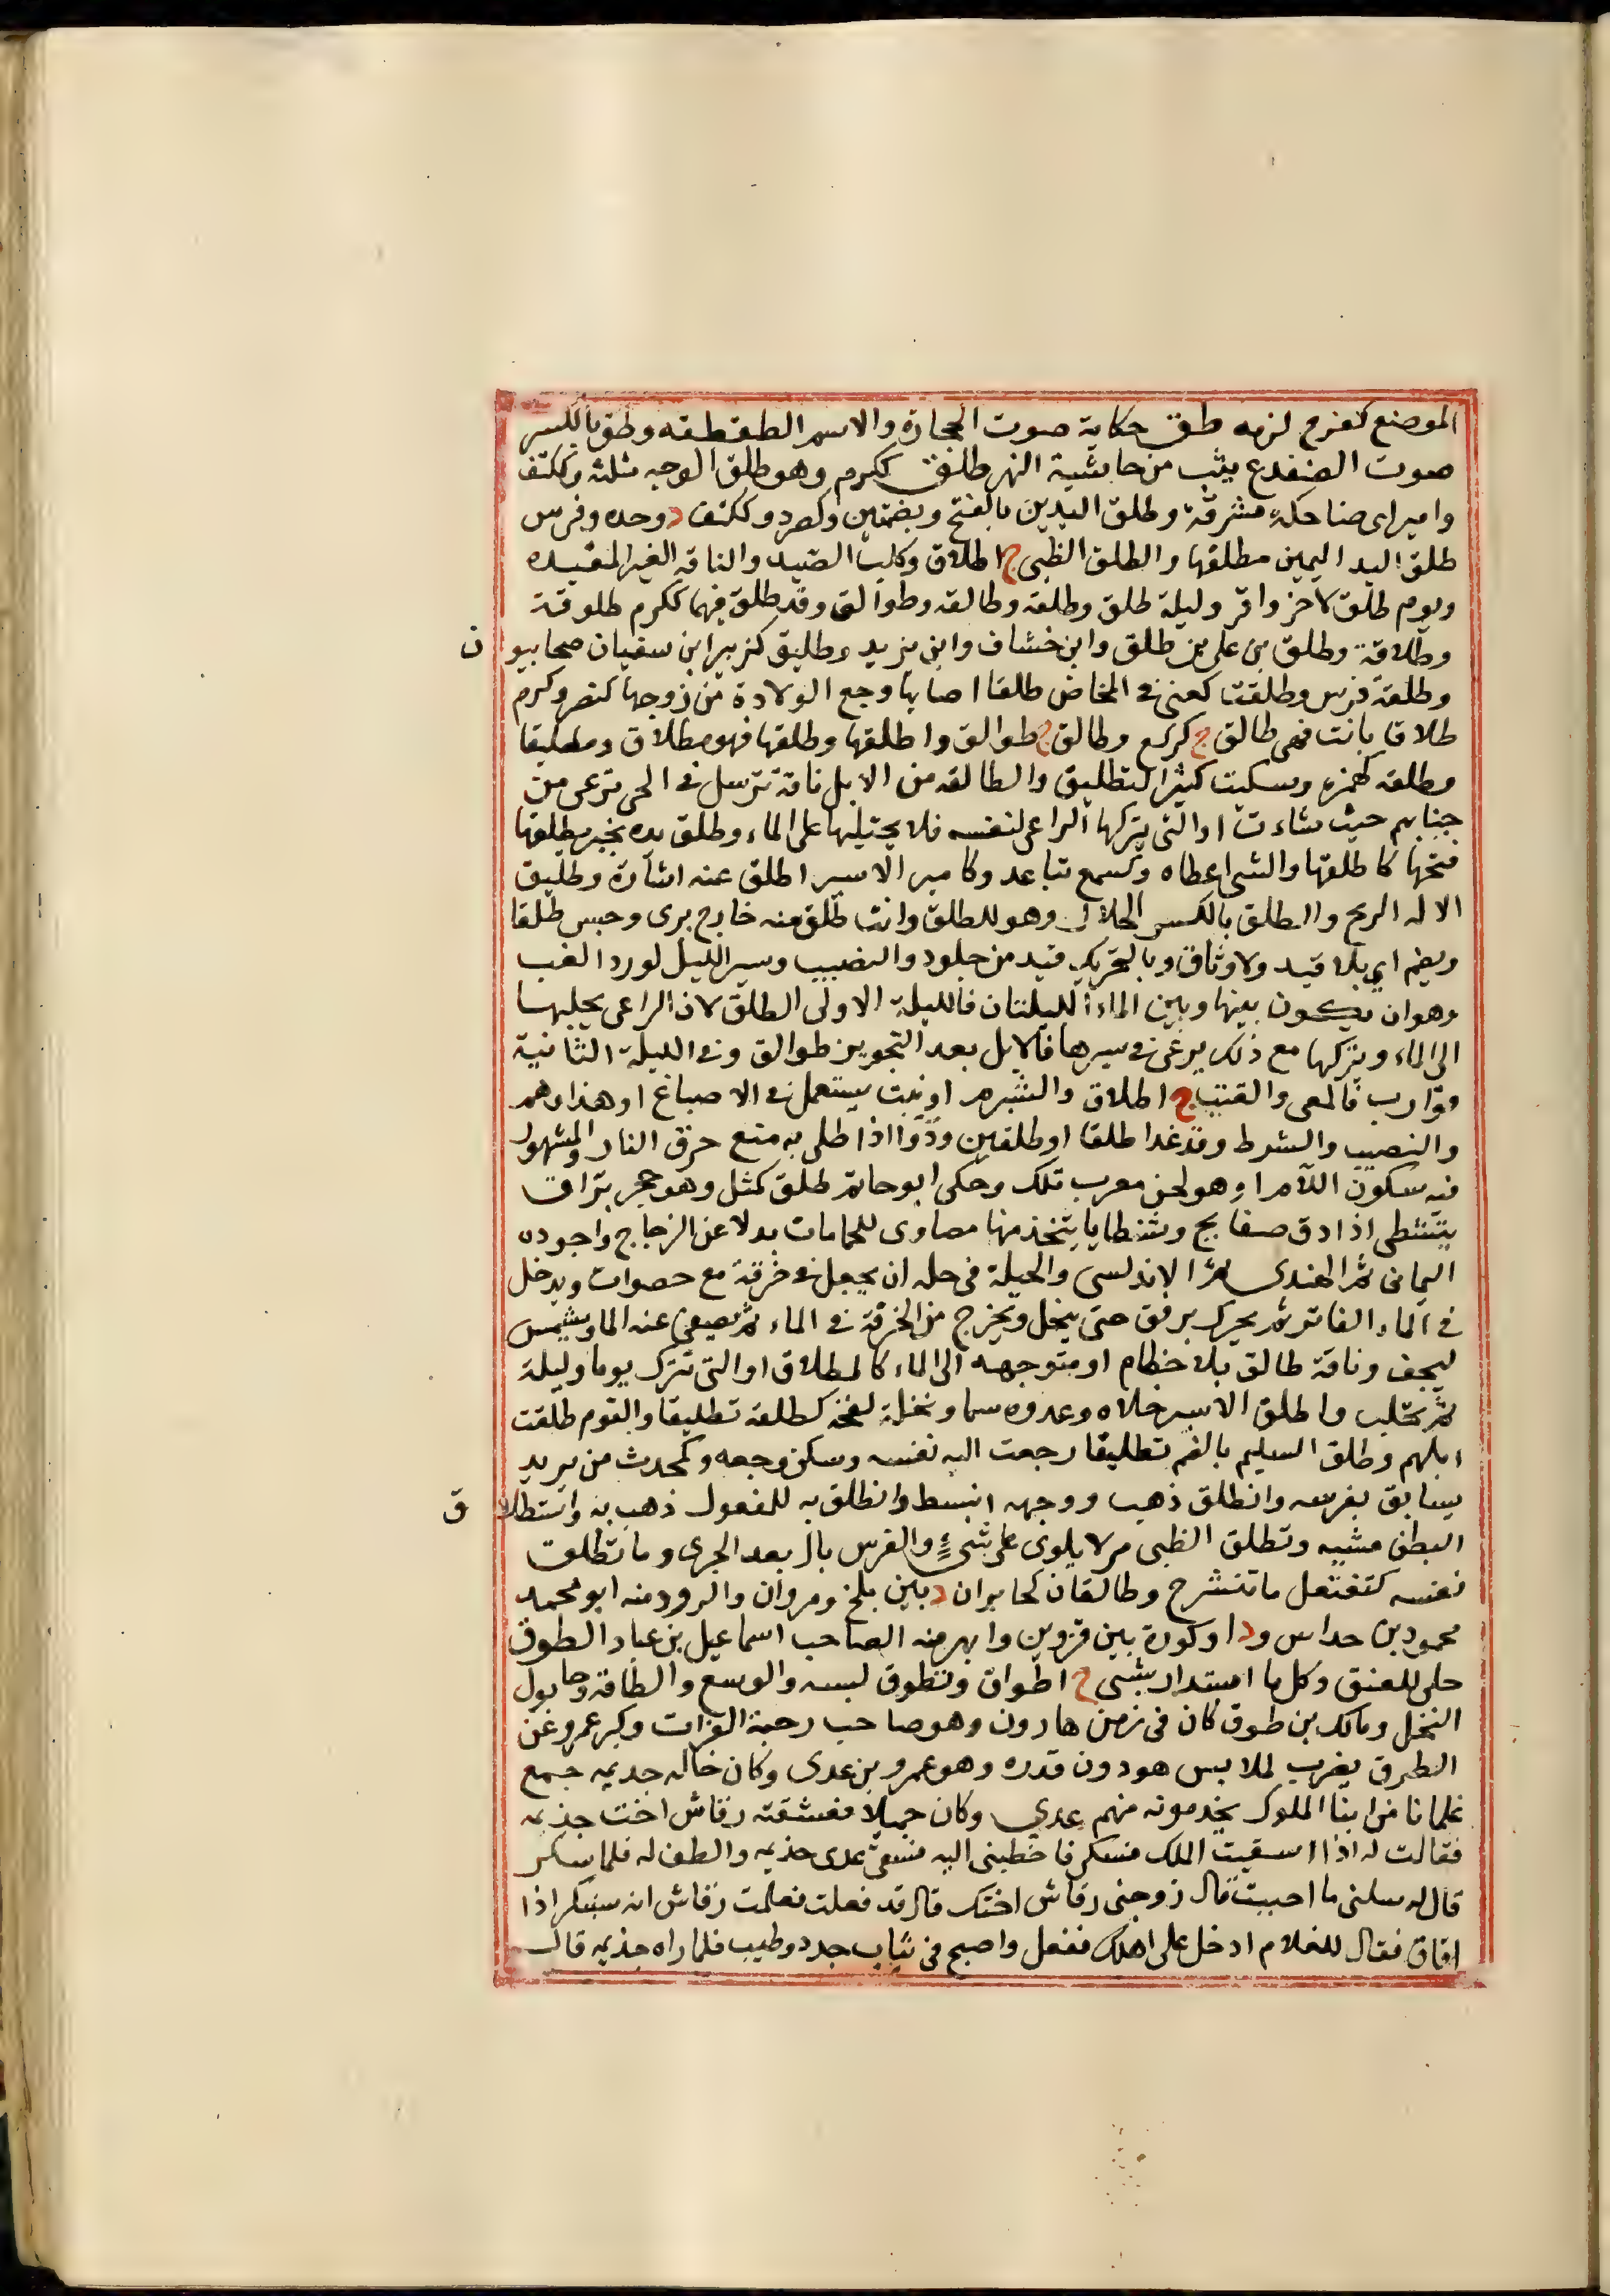 الموضع كفرح لزمه طق حكاية صوت الحجارة والاسم الطقطقه وطق بالكسر
صوت الضفدع يثب من حاشية النهر طلق ككرم وهو طلق الوجه مثلثه وككتف
وامير اى ضاحكه مشرقة وطلق اليدين بالفتح وبضمتين وكصرد وككتف د وحده وفرس
طلق اليد اليمين مطلقها والطلق الظبى ج اطلاق وكلب الصيد والناقه الغير المقيده
ويوم طلق لا حر ولا قر وليلة طلق وطلقه وطالقه وطوالق وقد طلق فيهما ككرم طلوقة
وطلاقة وطلق بن على بن طلق وابن خشاف وابن يزيد وطليق كزبير ابن سفيان صحابيون
وطلقة فرس وطلقت كعنى في المخاض طلقا اصابها وجع الولادة من زوجها كنصر وكرم
طلاقا بانت فهى طالق ج كركع وطالق ج طوالق واطلقها وطلقها فهو مطلاق ومطليقا
وطلقه كهمزه وسكيت كثير التطليق والطالقه من الابل ناقة ترسل في الحى ترعى من
جنابهم حيث شاءت او التى يتركها الراعى لنفسه فلا يحتلبها على الماء وطلق يده بخير يطلقها
فتحها كاطلقها والشى اعطاه وكسمع تباعد وكامير الاسير اطلق عنه اشارة وطليق
الاله الريح والطلق بالكسر الحلال وهو للطلق وانت طلق منه خارج برى وحبس طلقا
ويضم اى بلا قيد ولا وثاق وبالتحريك قيد من جلود والنصيب وسير الليل لورد الغب
وهو ان يكون بينها وبين الماء الليلتان فالليلة الاولى الطلق لان الراعى يحلبها
الى الماء ويتركها مع ذلك يرعى في سيرها فالابل بعد التحويز طوالق وفي الليلة الثانية
قوارب فالمعى والقتب ج اطلاق والشبرم او نبت يستعمل في الاصباغ او هذا وهم
والنصيب والشرط وقد غدا طلقا او طلقين ودواا اذا طلى به منع حرق النار والمشهور
فيه سكون اللام او هو لحن معرب تلك وحكى ابو حاتم طلق كمثل وهو حجر براق
يتشظى اذا دق صفايح وشظايا يتخذ منها مضاوى للحمامات بدلا عن الزجاج واجوده
اليمانى ثم الهندى ثم الاندلسى والحيلة فى حله ان يجعل في خرقة مع حصوات ويدخل
في الماء الفاتر ثم يحرك برفق حتى ينحل ويخرج من الخرقة في الماء ثم يصفى عنه الماء ويشمس
ليجف وناقة طالق بلا خطام او متوجهه الى الماء كالمطلاق او التى تترك يوما وليلة
ثم تحلب واطلق الاسير خلاه وعدوه سما ونخلة لقحه كطلقه تطليقا والقوم طلقت
ابلهم وطلق السليم بالضم تطليقا رجعت اليه نفسه وسكن وجعه وكمحدث من يريد
يسابق بفرسه وانطلق ذهب ووجهه انبسط وانطلق به للمفعول ذهب به واستطلاق
البطن مشيه وتطلق الظبى مر لا يلوى على شىء والفرس بال بعد الجرى وما تطلق
نفسه كتفتعل ما تنشرح وطالقان كخابران د بين بلخ ومروان والرود منه ابو محمد
محمود بن حداس ود او كورة بين قزوين وابهر منه الصاحب اسماعيل بن عباد الطوق
حلى للعنق وكل ما استدار بشى ج اطواق وتطوق لبسه والوسع والطاقه وحابول
النخل ومالك بن طوق كان فى زمن هارون وهو صاحب رحبة الفرات وكبر عمرو عن
الطوق يضرب لملابس هو دون قدره وهو عمرو بن عدى وكان خاله جذيمه جمع
غلمانا من ابنا الملوك يخدمونه منهم عدي وكان جميلا فعشقته رقاش اخت جذيمه
فقالت له اذا اسقيت الملك فسكر فاخطبنى اليه فسقى عدى جذيمه والطف له فلما سكر
قال له سلنى ما احببت قال زوجنى رقاش اختك قال قد فعلت فعلمت رقاش انه سينكر اذا
افاق فقال للغلام ادخل على اهلك ففعل واصبح فى ثياب جدد وطيب فلما راه جذيمه قال